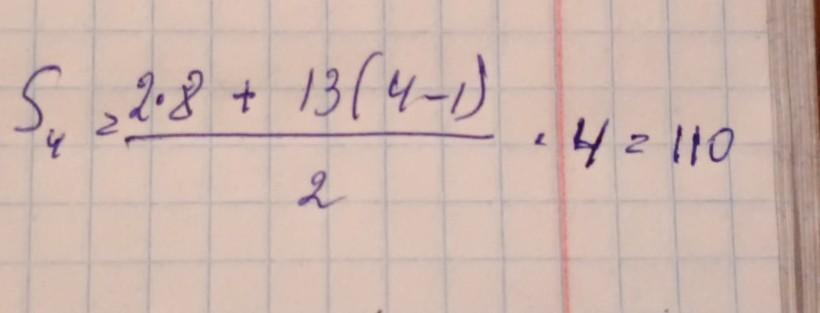 S₄ = (2·8 + 13(4-1)) / 2 · 4 = 110